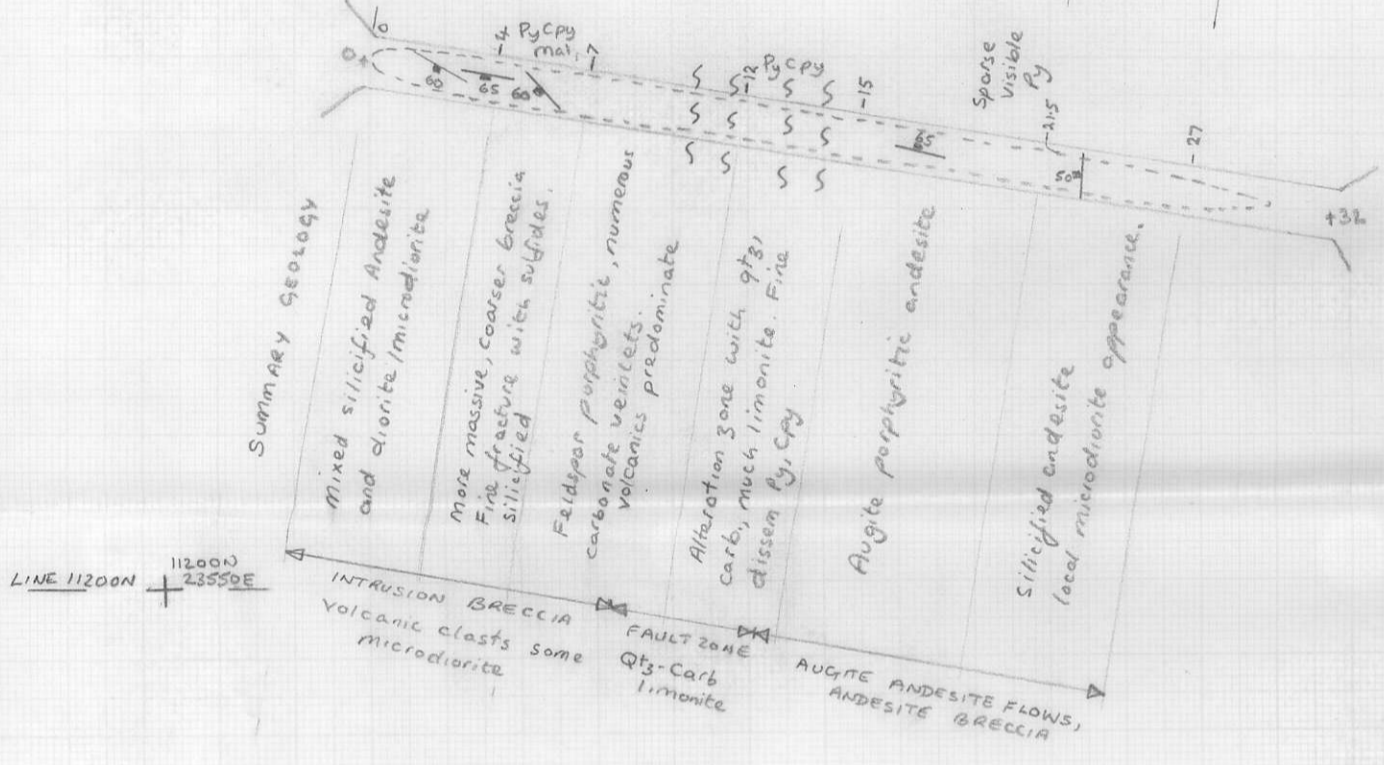 0
0+
-4
Py Cpy
mal,
-7
80
65
60
-12
Py Cpy
-15
65
Sparse
Visible
Py
-21.5
50
-27
+32
SUMMARY GEOLOGY
Mixed silicified Andesite
and diorite/microdiorite
More massive, coarser breccia
Fine fracture with sulfides.
silicified
Feldspar porphyritic, numerous
carbonate veinlets.
volcanics predominate
Alteration zone with qtz,
carb, much limonite. Fine
dissem Py, Cpy
Augite porphyritic andesite
Silicified andesite
local microdiorite appearance.
LINE 11200N
11200N
23550E
INTRUSION BRECCIA
Volcanic clasts some
microdiorite
FAULT ZONE
Qtz-Carb
limonite
AUGITE ANDESITE FLOWS,
ANDESITE BRECCIA